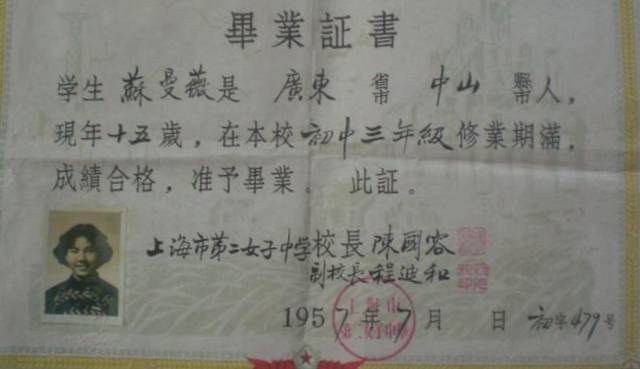 畢業証書
学生 蘇曼薇是 廣東 省市 中山 縣市人，
現年十五歲，在本校初中三年級修業期滿，
成績合格，准予畢業。 此証。
上海市第二女子中学校長陳國容
副校長程迪和
1957年7月 日 初字479号
上海市
第二女子中學